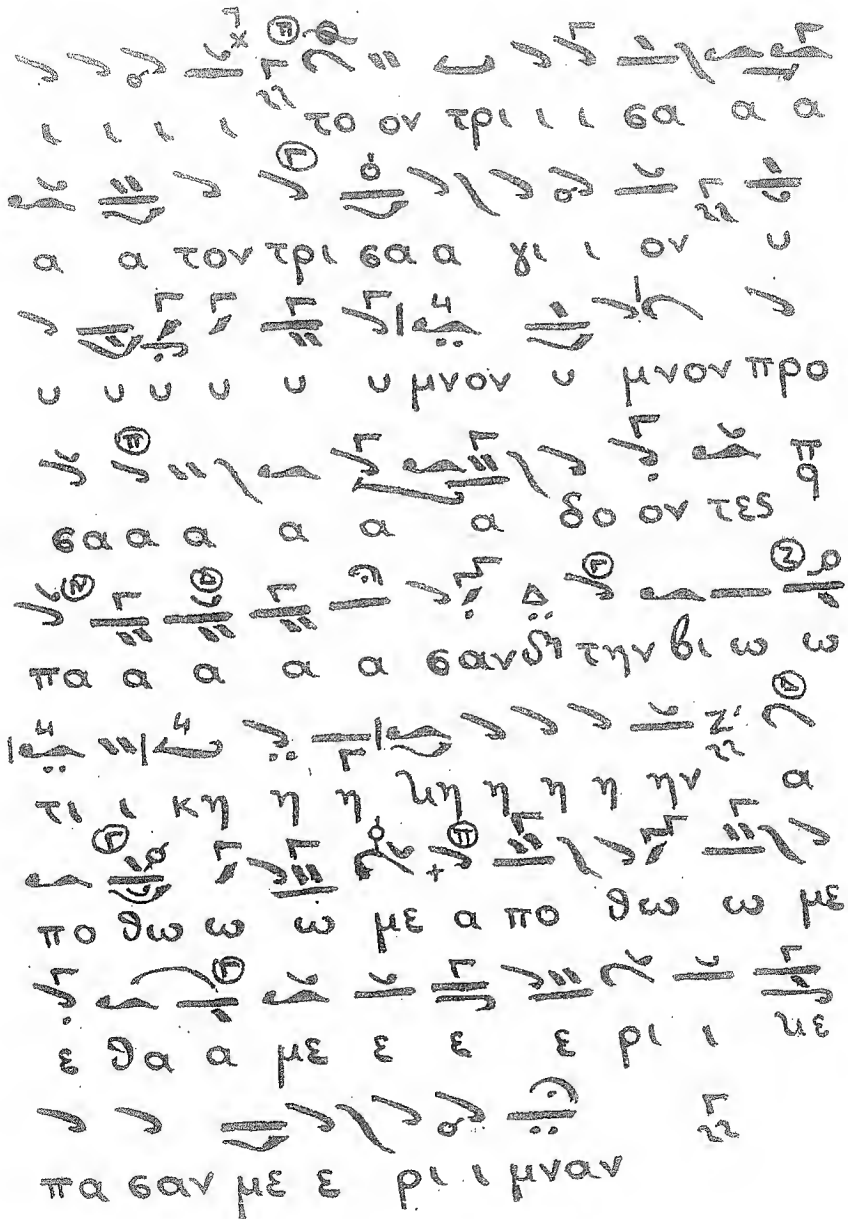 ι ι ι ι το ον τρι ι ι σα α α
α α τον τρι σα α γι ι ον υ
υ υ υ υ υ υ μνον υ μνον προ
σα α α α α α δο ον τες
πα α α α α σαν δη την βι ω ω
τι ι κη η η κη η η η ην α
πο θω ω ω με α πο θω ω με
ε θα α με ε ε ε ρι ι με
πα σαν με ε ρι ι μναν